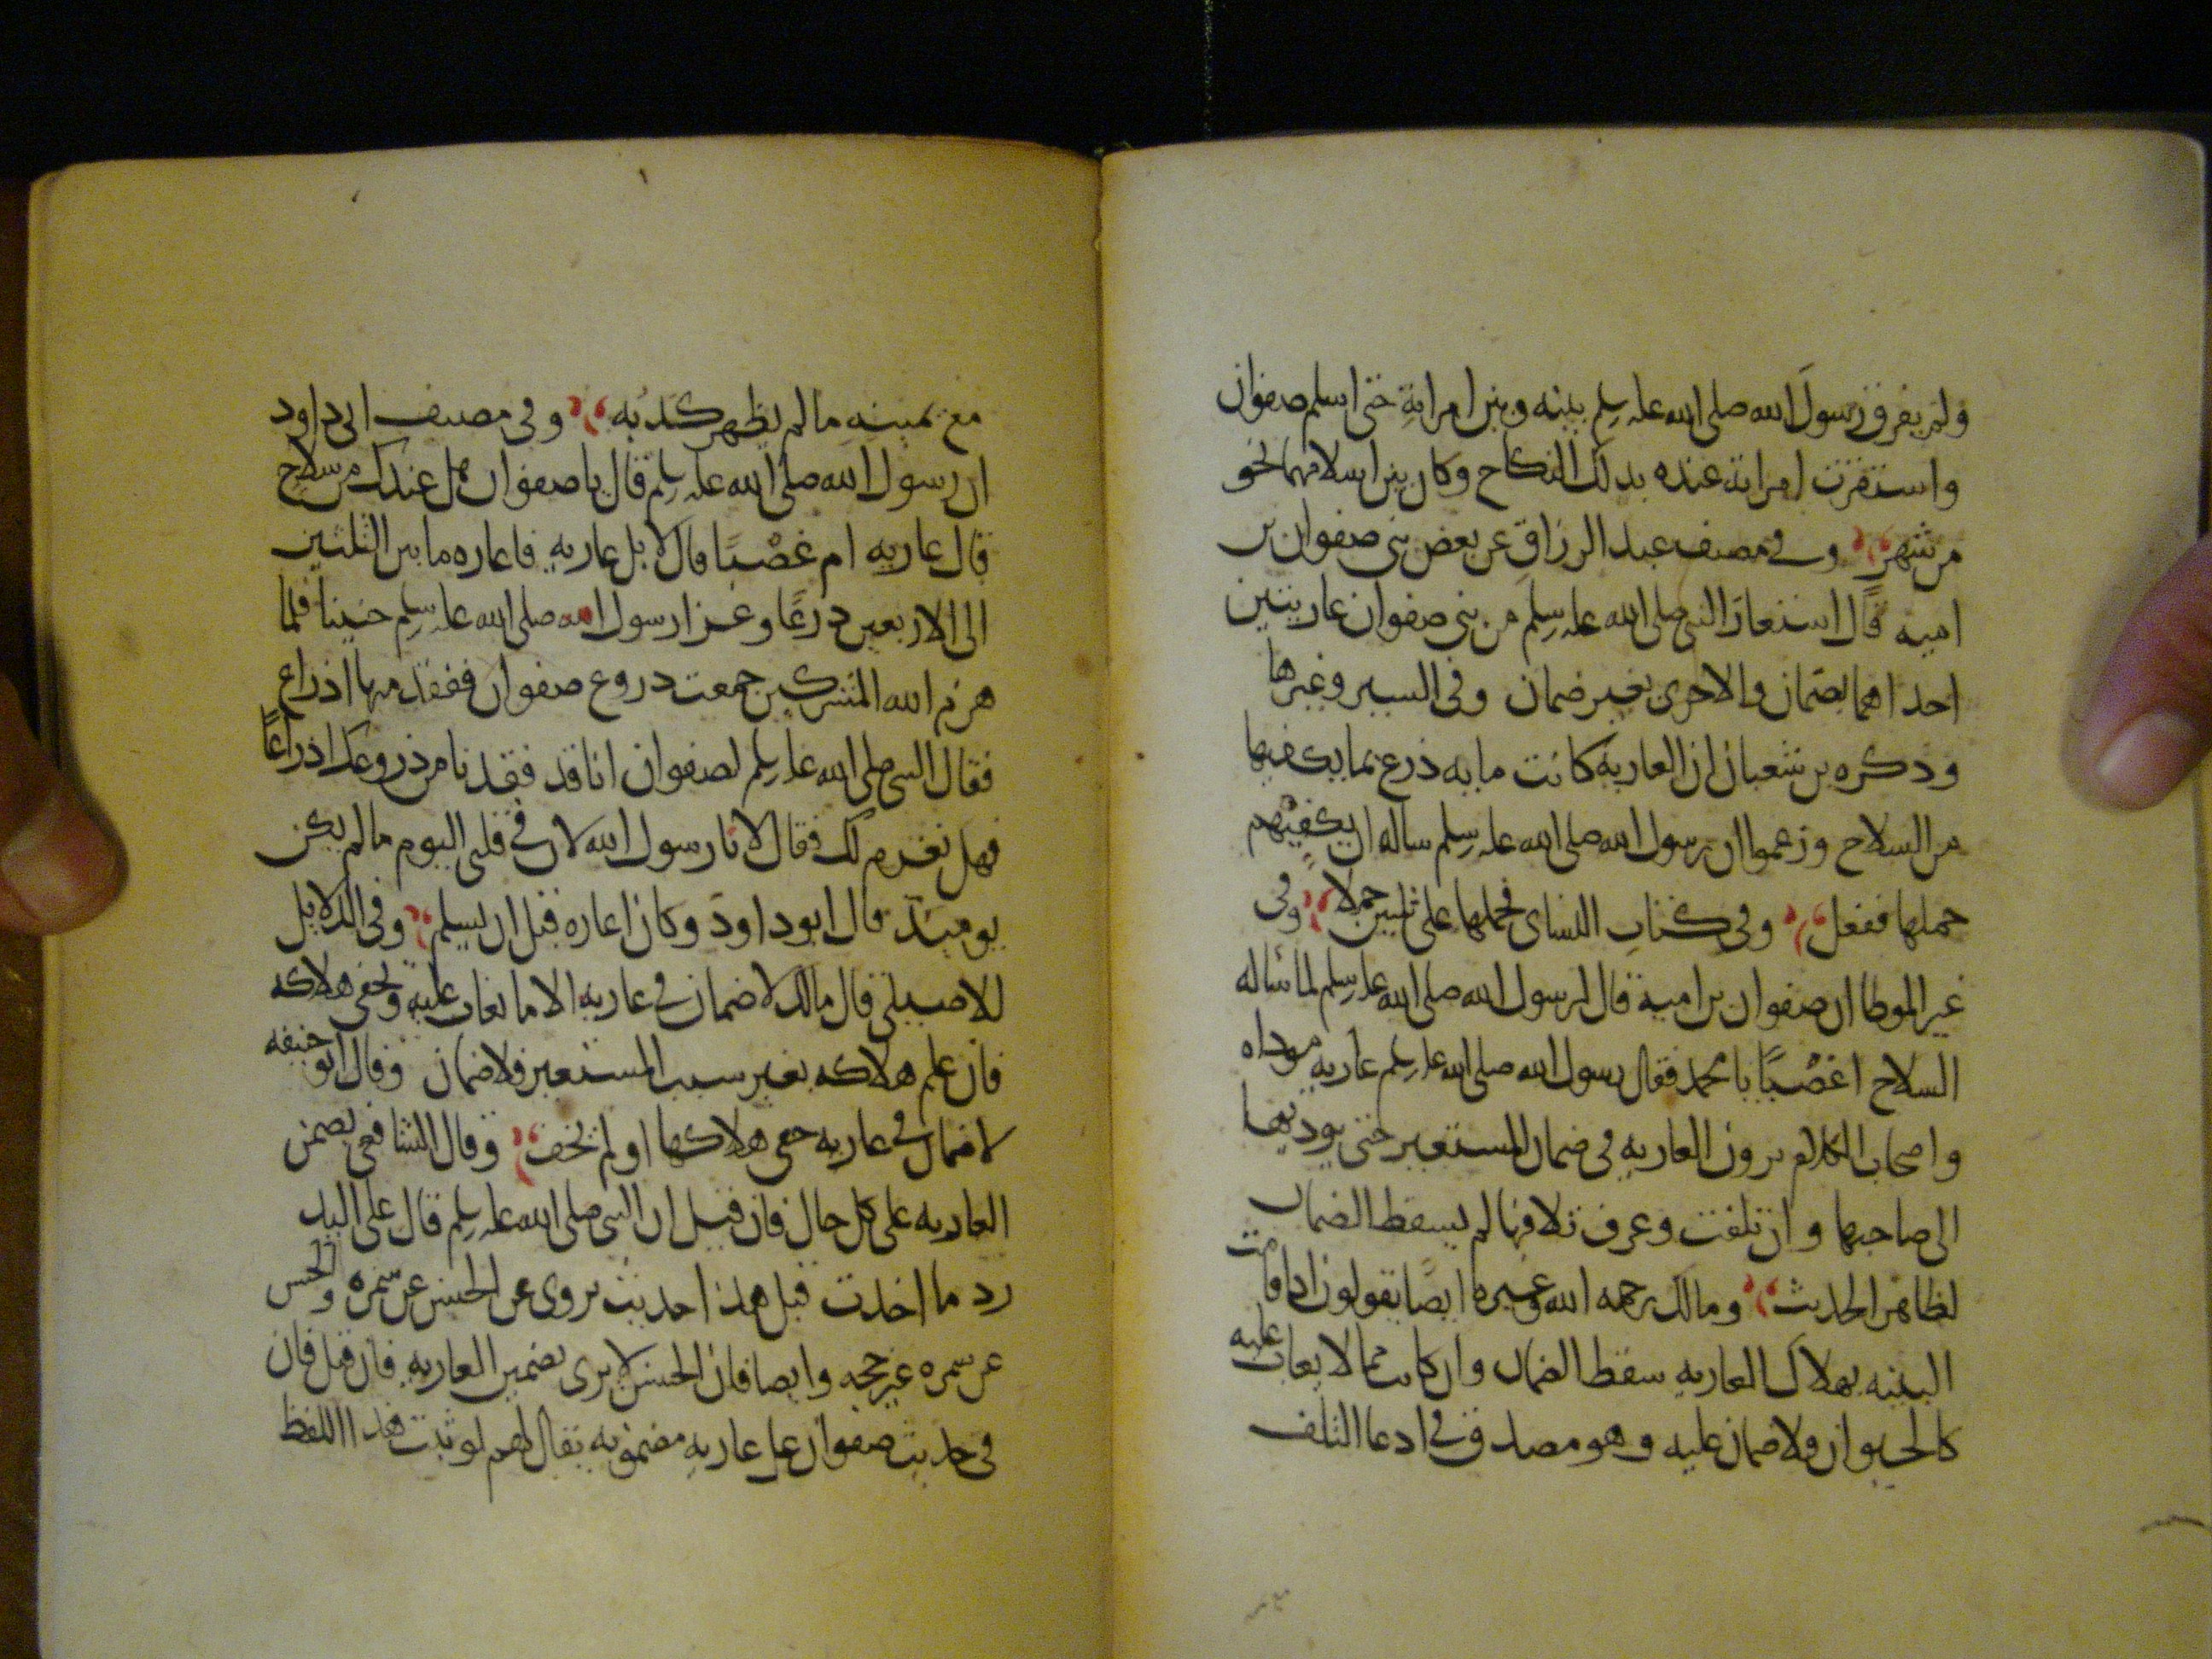 ولم يفرق رسول الله صلى الله عليه وسلم بينه وبين امراته حتى اسلم صفوان
واستقرت امراته عنده بذلك النكاح وكان بين اسلامهما نحو
من شهر وفي مصنف عبد الرزاق عن بعض بني صفوان بن
امية قال استعار النبي صلى الله عليه وسلم من بني صفوان عاريتين
احداهما بضمان والاخرى بغير ضمان وفي السير وغيرها
وذكره بن شعبان ان العارية كانت ماية درع بما يكفيها
من السلاح وزعموا ان رسول الله صلى الله عليه وسلم ساله ان يكفيهم
حملها ففعل وفي كتاب النساي فحملها على ثلثين جملا وفي
غير الموطا ان صفوان بن امية قال لرسول الله صلى الله عليه وسلم لما ساله
السلاح اغصبًا يا محمد فقال رسول الله صلى الله عليه وسلم عارية موداه
واصحاب الكلام يرون العارية في ضمان المستعير حتى يوديها
الى صاحبها وان تلفت وعرف تلافها لم يسقط الضمان
لظاهر الحديث ومالك رحمه الله وغيره ايضا يقولون اذا قامت
البينه بهلاك العارية سقط الضمان وان كانت مما لا يغاب عليه
كالحيوان فلا ضمان عليه وهو مصدق في ادعا التلف
مع يمينه ما لم يظهر كذبه وفي مصنف ابي داود
ان رسول الله صلى الله عليه وسلم قال يا صفوان هل عندك من سلاح
قال عارية ام غصْبًا قال لا بل عارية فاعاره ما بين الثلثين
الى الاربعين درعًا وغزا رسول الله صلى الله عليه وسلم حنينا فلما
هزم الله المشركين جمعت دروع صفوان ففقد منها ادراع
فقال النبي صلى الله عليه وسلم لصفوان انا قد فقدنا من دروعك ادراعًا
فهل نغرم لك فقال لا يا رسول الله لان في قلبي اليوم ما لم يكن
يوميذ قال ابو داود وكان اعاره قبل ان يسلم وفي الدلايل
للاصيلي قال مالك لا ضمان في عارية الا ما يغاب عليه ويخفى هلاكه
فان علم هلاكه بغير سبب المستعير فلا ضمان وقال ابو حنيفه
لا ضمان في عارية خفي هلاكها او لم يخف وقال الشافعي يضمن
العارية على كل حال فان قيل ان النبي صلى الله عليه وسلم قال على اليد
رد ما اخذت قيل هذا حديث يروى عن الحسن عن سمره والحسن
عن سمره غير حجه وايضا فان الحسن لا يرى تضمين العارية فان قيل فان
في حديث صفوان بل عارية مضمونه يقال لهم لو ثبت هذا اللفظ